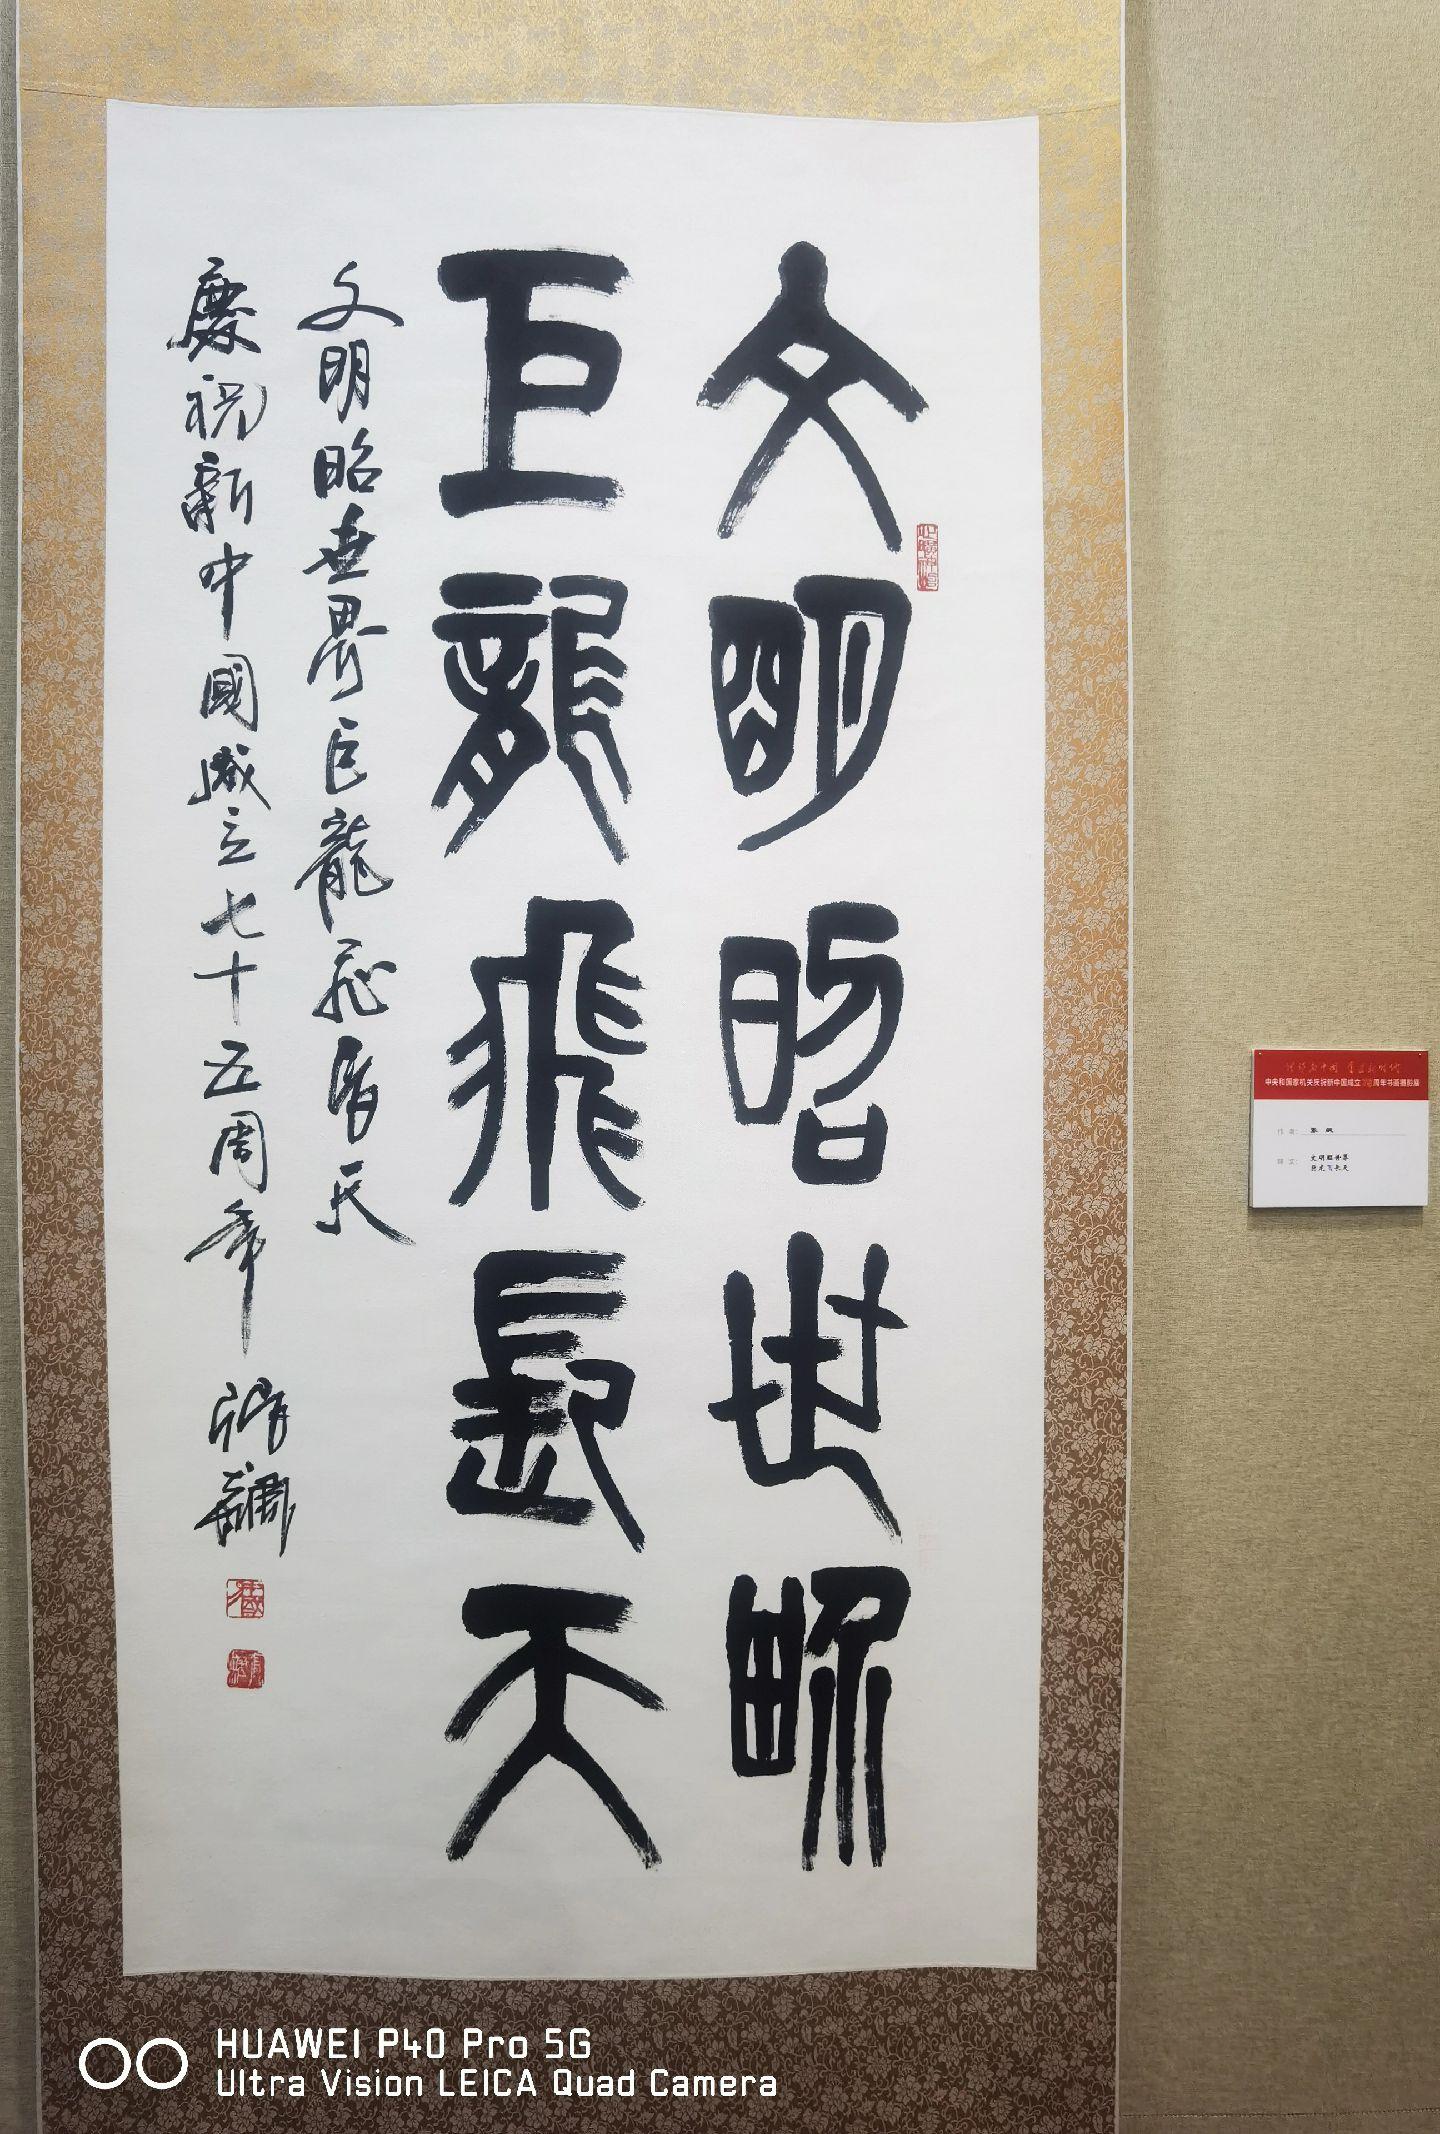 文明昭世界
巨龍飛長天
文明昭世界巨龍飛長天
慶祝新中國成立七十五周年
中央和国家机关庆祝新中国成立75周年书画摄影展
作者：
释文：文明昭世界
巨龙飞长天
HUAWEI P40 Pro 5G
Ultra Vision LEICA Quad Camera